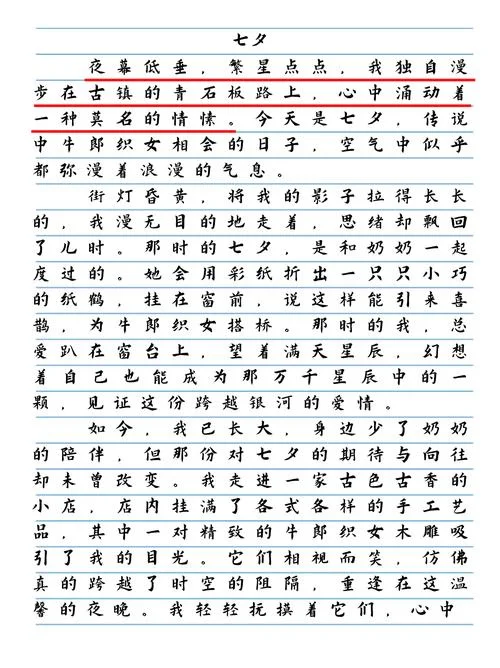 七夕
夜幕低垂，繁星点点，我独自漫
步在古镇的青石板路上，心中涌动着
一种莫名的情愫。今天是七夕，传说
中牛郎织女相会的日子，空气中似乎
都弥漫着浪漫的气息。
街灯昏黄，将我的影子拉得长长
的，我漫无目的地走着，思绪却飘回
了儿时。那时的七夕，是和奶奶一起
度过的。她会用彩纸折出一只只小巧
的纸鹤，挂在窗前，说这样能引来喜
鹊，为牛郎织女搭桥。那时的我，总
爱趴在窗台上，望着满天星辰，幻想
着自己也能成为那万千星辰中的一
颗，见证这份跨越银河的爱情。
如今，我已长大，身边少了奶奶
的陪伴，但那份对七夕的期待与向往
却未曾改变。我走进一家古色古香的
小店，店内挂满了各式各样的手工艺
品，其中一对精致的牛郎织女木雕吸
引了我的目光。它们相视而笑，仿佛
真的跨越了时空的阻隔，重逢在这温
馨的夜晚。我轻轻抚摸着它们，心中